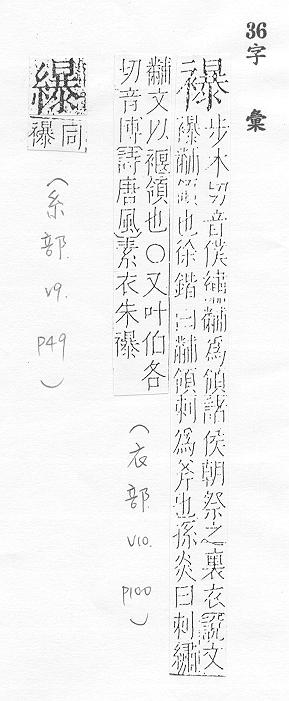 36
字彙
襮
步木切音僕繡黼為領諸侯朝祭之裏衣說文
襮黼領也徐鍇曰黼領刺為斧也孫炎曰刺繡
黼文以褗領也○又叶伯各
切音博詩唐風素衣朱襮
(衣部 V10. P100)
䙨
同
襮
(糸部 V9. P49)